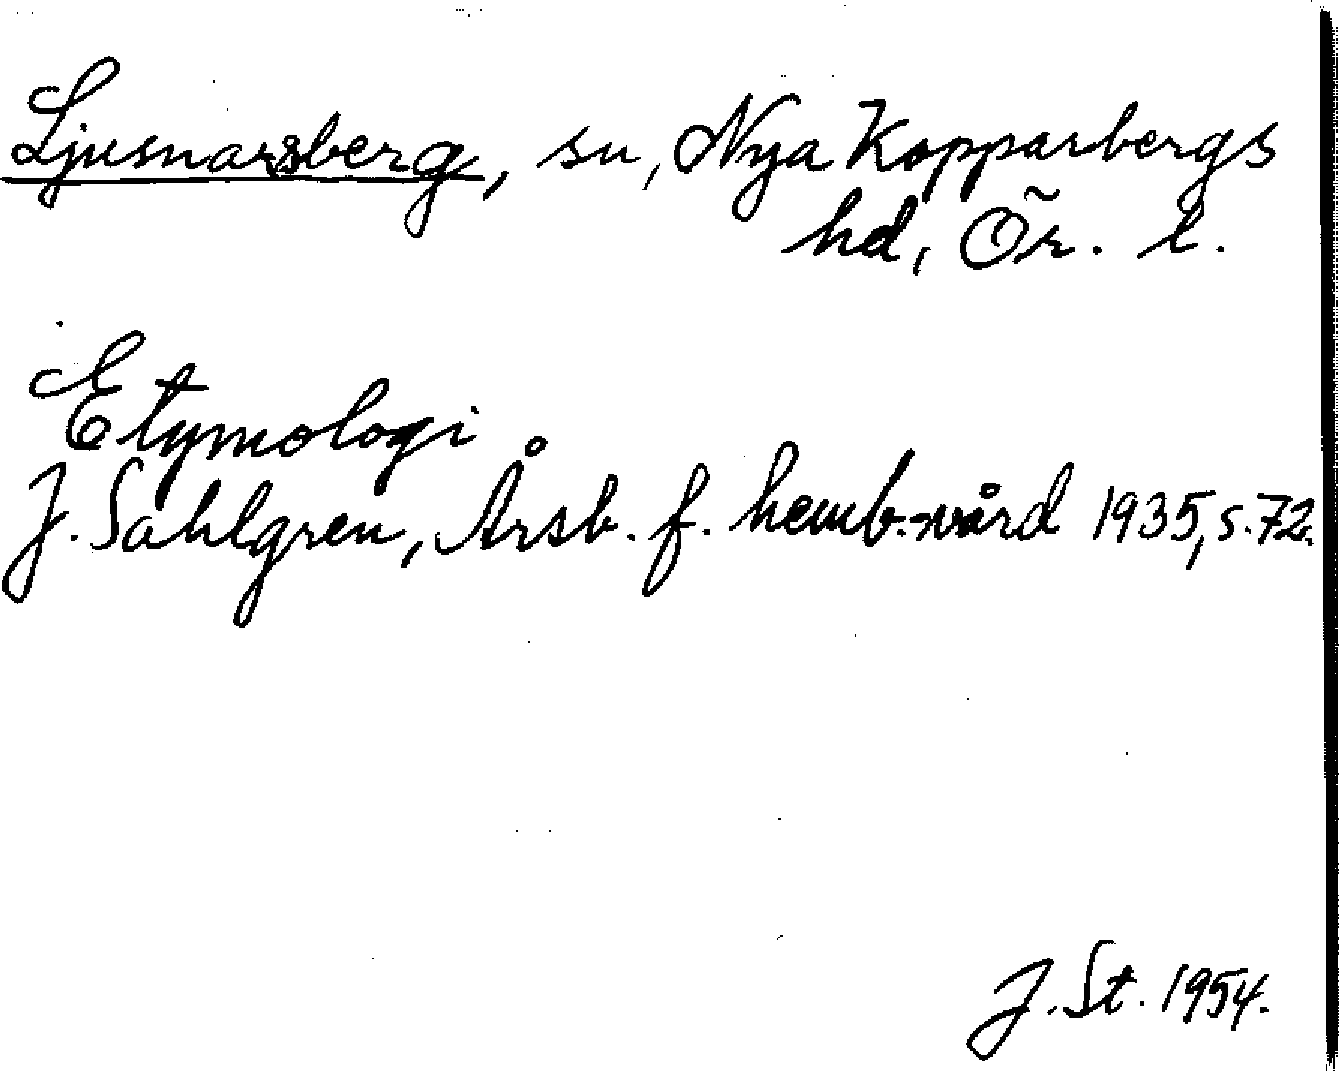 Ljusnarsberg, sn, Nya Kopparbergs
hd, Ör. l.
Etymologi
J. Sahlgren, Årsb. f. hemb.-vård 1935, s. 72.
J. St. 1954.